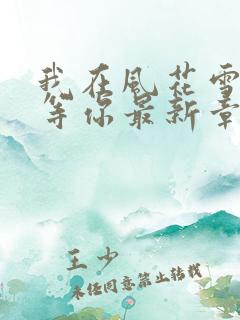 我在风花雪
等你最新章
王少
未经同意禁止转载